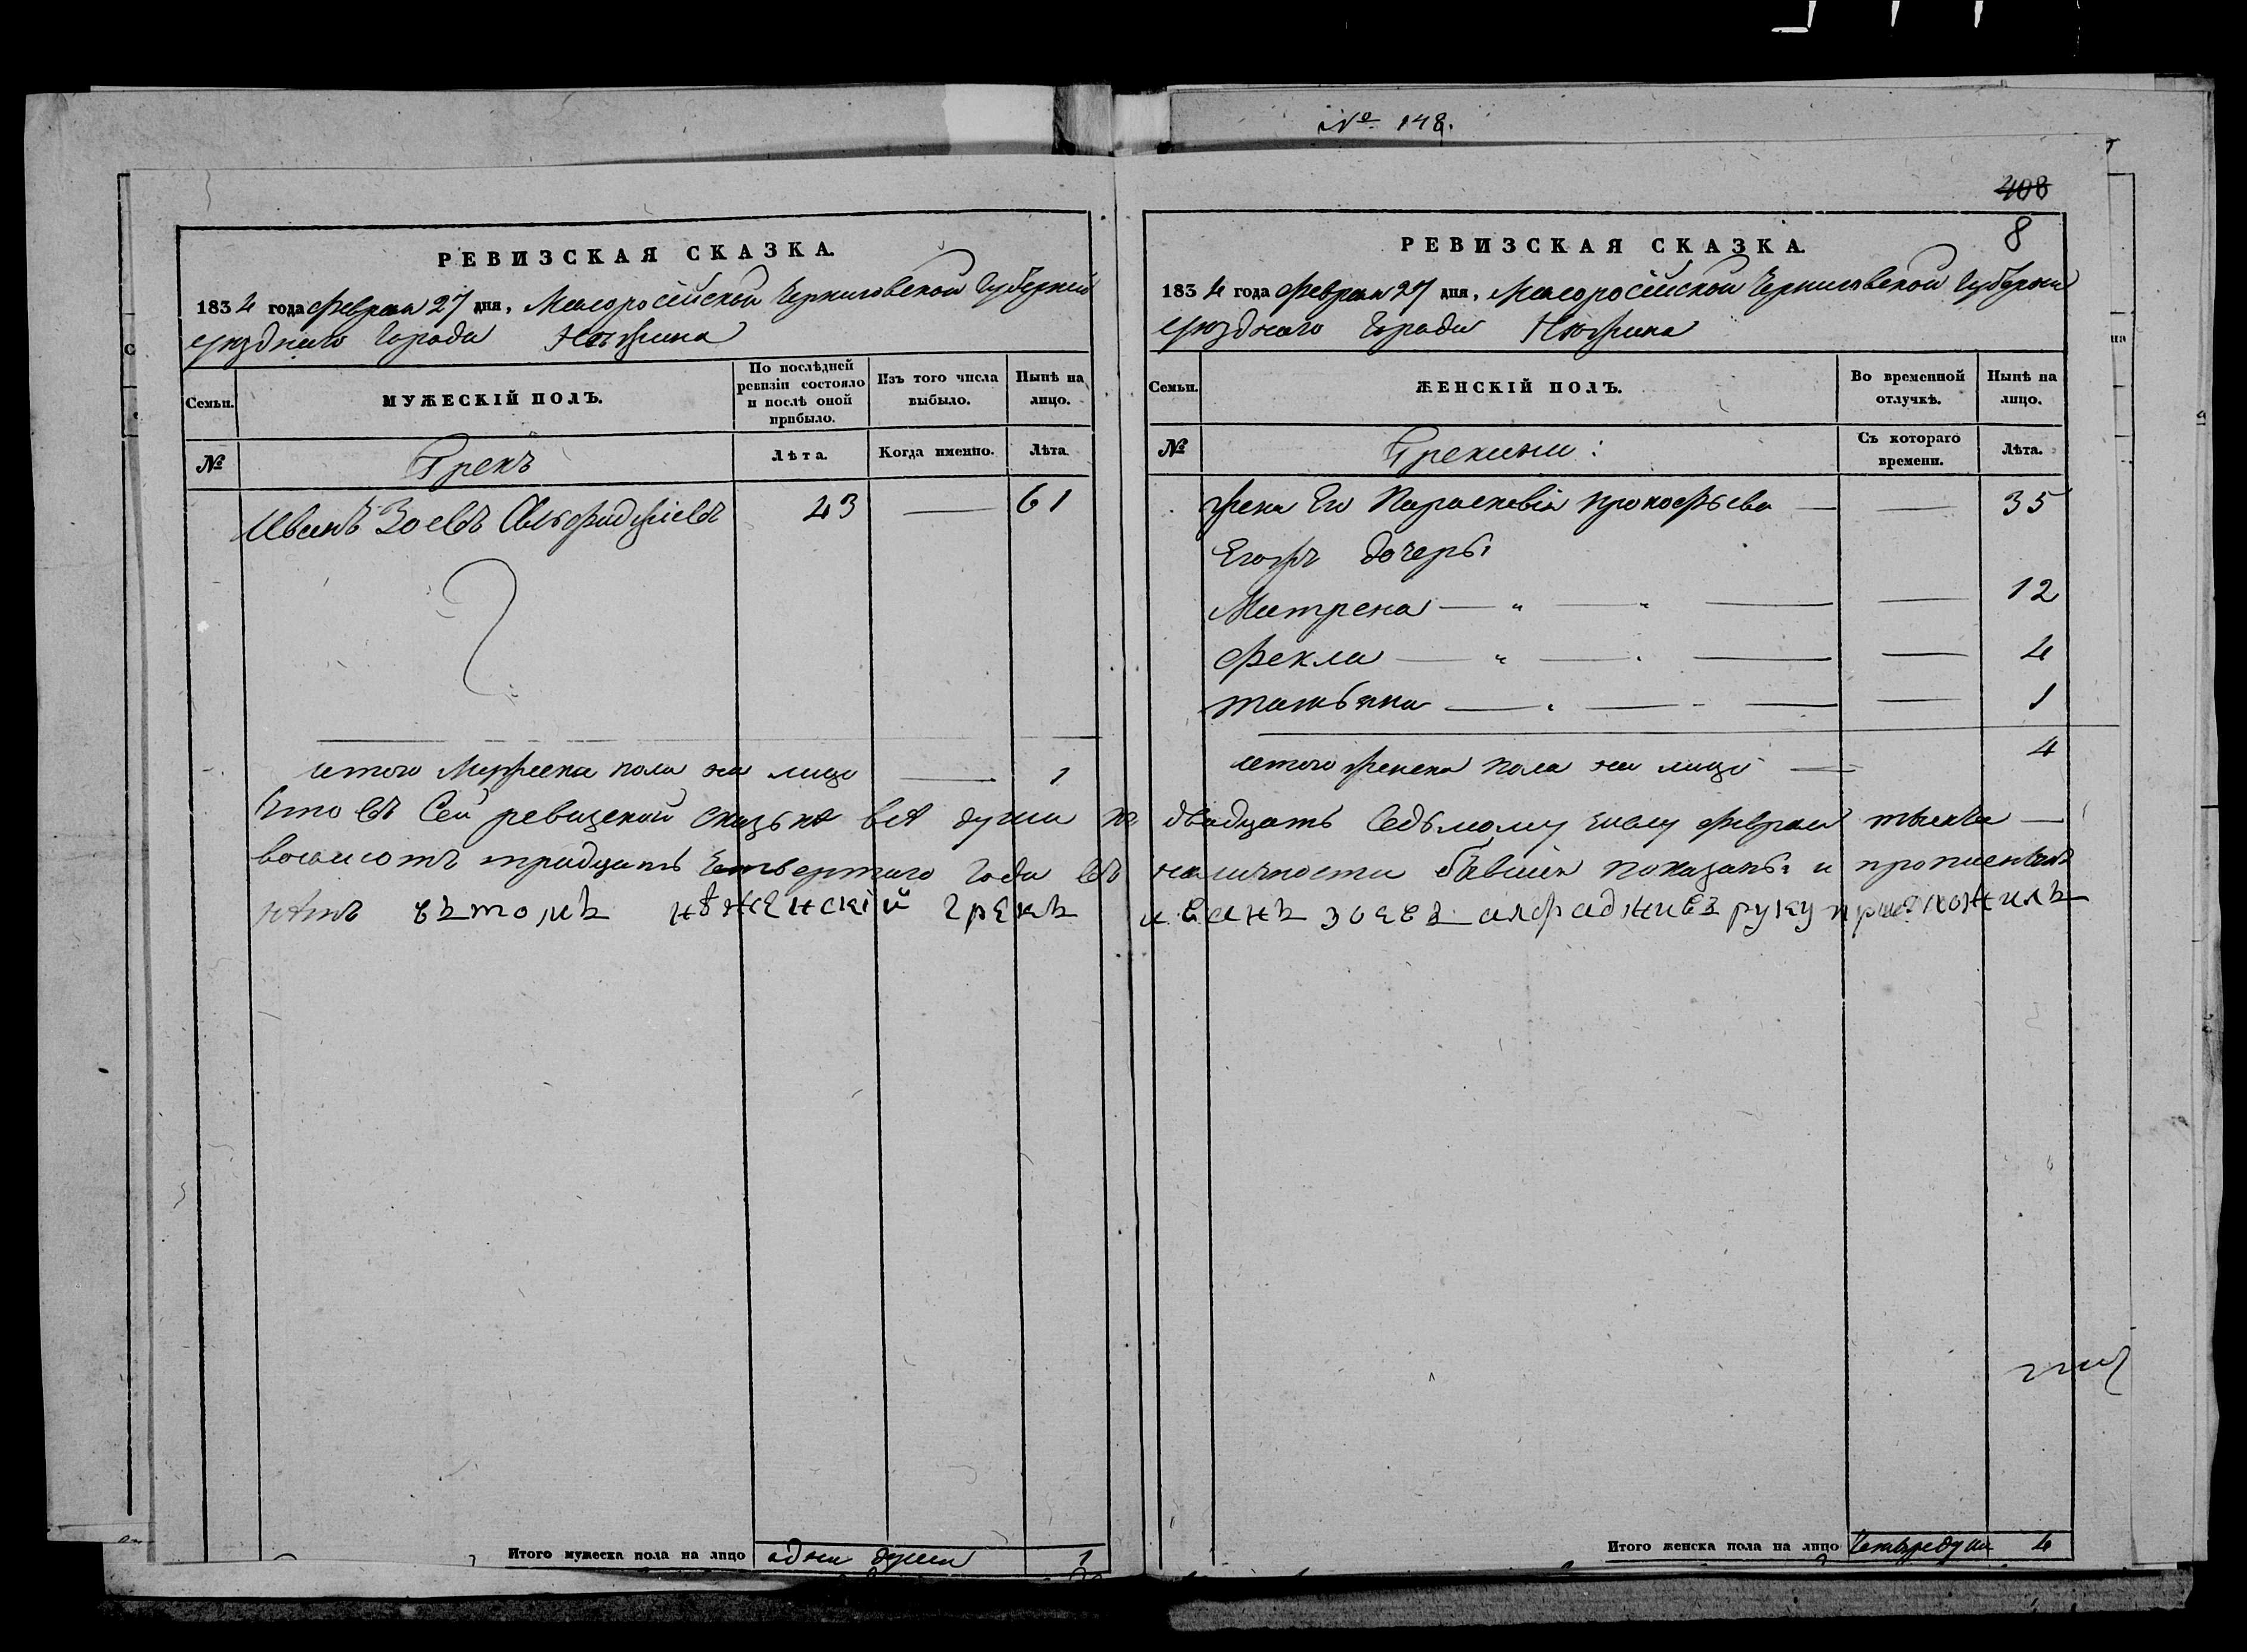 № 148.
408
8
РЕВИЗСКАЯ СКАЗКА.
1834 года февраля 27 дня, Малоросійской Черниговской Губерніи
уѣзднаго города Нѣжина
Семьи.
МУЖЕСКІЙ ПОЛЪ.
По послѣдней ревизіи состояло и послѣ оной прибыло.
Изъ того числа выбыло.
Нынѣ на лицо.
№
Грекъ
Лѣта.
Когда именно.
Лѣта.
Иванъ Зоевъ Альфиджіевъ 43 — 61
итого Мужеска пола на лицо — 1
РЕВИЗСКАЯ СКАЗКА.
1834 года февраля 27 дня, Малоросійской Черниговской Губерніи
уѣзднаго города Нѣжина
Семьи.
ЖЕНСКІЙ ПОЛЪ.
Во временной отлучкѣ.
Нынѣ на лицо.
№
Грекини:
Съ котораго времени.
Лѣта.
жена Его Параскевія Прокофьева — — 35
Егожъ дочеры
Матрена — " — " — — 12
Фекла — " — — — 4
татьяна — — — — 1
итого женска пола на лицо — 4
Что въ Сей ревизской сказькѣ всѣ души по двадцать Седьмому числу февраля тысеча —
восемсотъ тридцать Четвертаго года въ наличности бывшія показаны и прописныхъ
нѣтъ вътомъ нѣженскій грекъ иванъ зоевъ алфаджиевъ руку приложилъ
Итого мужеска пола на лицо одна душа 1
Итого женска пола на лицо Четыре души 4